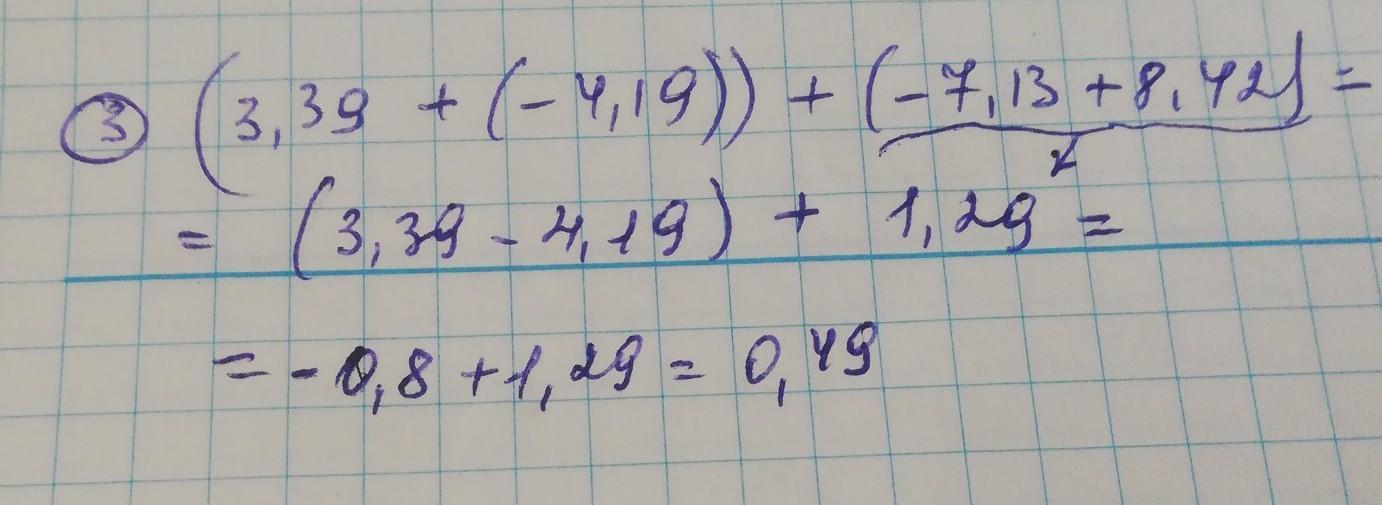 ③ (3,39 + (-4,19)) + (-7,13 + 8,42) =
= (3,39 - 4,19) + 1,29 =
= -0,8 + 1,29 = 0,49